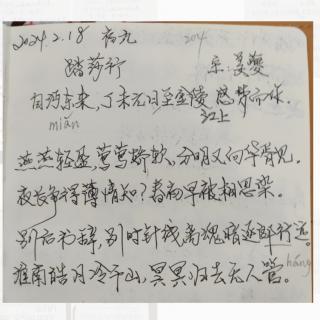 2024.2.18 夜九 204
踏莎行 宋:姜夔
自沔东来,丁未元日至金陵 感梦而作.
miǎn 江上
燕燕轻盈,莺莺娇软,分明又向华胥见.
夜长争得薄情知?春初早被相思染.
别后书辞,别时针线,离魂暗逐郎行远。
háng
淮南皓月冷千山,冥冥归去无人管。